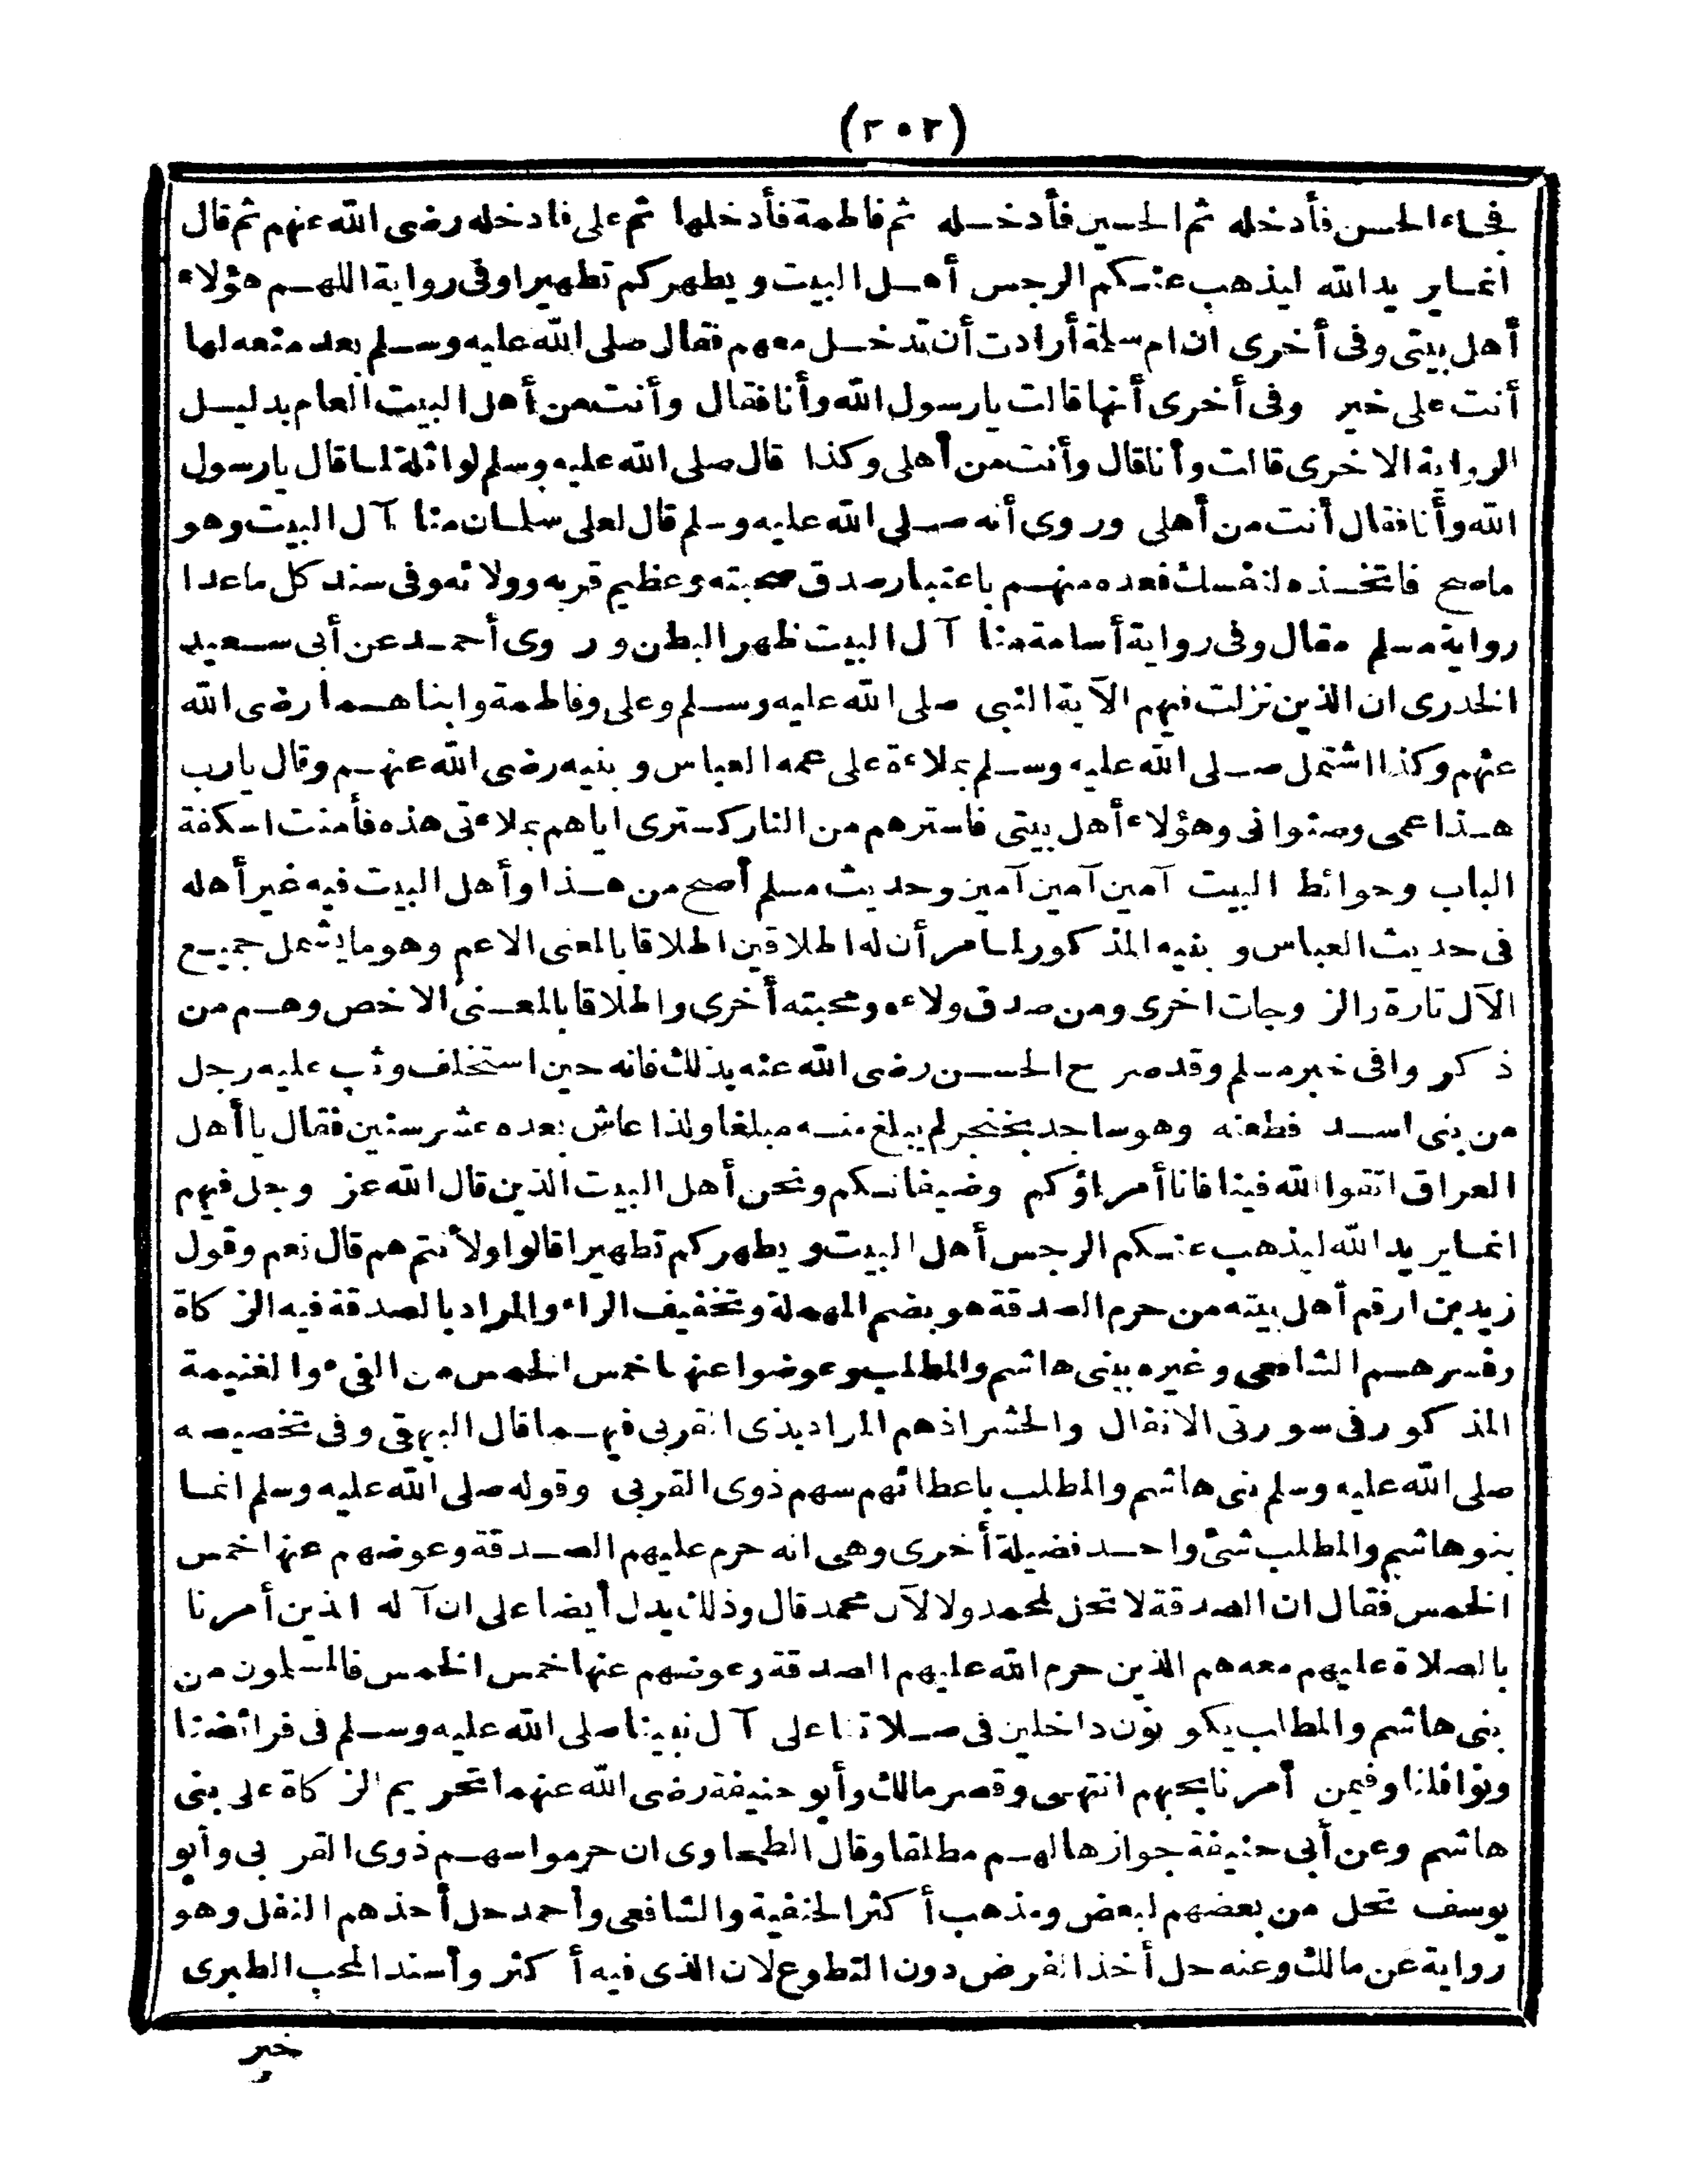 (٢٠٢)
فجاء الحسن فأدخله ثم الحسين فأدخله ثم فاطمة فأدخلها ثم على فادخله رضى الله عنهم ثم قال
انما يريد الله ليذهب عنكم الرجس أهل البيت ويطهركم تطهيرا وفى رواية اللهم هؤلاء
أهل بيتى وفى أخرى ان ام سلمة أرادت أن تدخل معهم فقال صلى الله عليه وسلم بعد منعه لها
أنت على خير وفى أخرى أنها قالت يا رسول الله وأنا فقال وأنت من أهل البيت العام بدليل
الرواية الاخرى قالت وأنا قال وأنت من أهلى وكذا قال صلى الله عليه وسلم لواثلة لما قال يا رسول
الله وأنا فقال أنت من أهلى وروى أنه صلى الله عليه وسلم قال لعلى سلمان منا آل البيت وهو
ماصح فاتخذه لنفسك فعده منهم باعتبار صدق صحبته وعظيم قربه وولائه وفى سند كل ماعدا
رواية مسلم مقال وفى رواية أسامة منا آل البيت ظهر البطن وروى أحمد عن أبى سعيد
الخدرى ان الذين نزلت فيهم الآية النبى صلى الله عليه وسلم وعلى وفاطمة وابناهما رضى الله
عنهم وكذا اشتمل صلى الله عليه وسلم بملاءة على عمه العباس وبنيه رضى الله عنهم وقال يارب
هذا عمى وصنوا نى وهؤلاء أهل بيتى فاسترهم من النار كسترى اياهم بملاءتى هذه فأمنت اسكفة
الباب وحوائط البيت آمين آمين آمين وحديث مسلم أصح من هذا وأهل البيت فيه غير أهله
فى حديث العباس وبنيه المذكور لما مر أن له اطلاقين اطلاقا بالمعنى الاعم وهو ما يشمل جميع
الآل تارة والزوجات اخرى ومن صدق ولاءه ومحبته أخرى واطلاقا بالمعنى الاخص وهم من
ذكروا فى خبر مسلم وقد صرح الحسن رضى الله عنه بذلك فانه حين استخلف وثب عليه رجل
من بنى اسد فطعنه وهو ساجد بخنجر لم يبلغ منه مبلغا ولذا عاش بعده عشر سنين فقال يا أهل
العراق اتقوا الله فينا فانا أمراؤكم وضيفانكم ونحن أهل البيت الذين قال الله عز وجل فيهم
انما يريد الله ليذهب عنكم الرجس أهل البيت ويطهركم تطهيرا قالوا ولأنتم هم قال نعم وقول
زيد بن ارقم أهل بيته من حرم الصدقة هو بضم المهملة وتخفيف الراء والمراد بالصدقة فيه الزكاة
وفسرهم الشافعى وغيره ببنى هاشم والمطلب وعوضوا عنها خمس الخمس من الفىء والغنيمة
المذكور فى سورتى الانفال والحشر اذهم المراد بذى القربى فيهما قال البيهقى وفى تخصيصه
صلى الله عليه وسلم بنى هاشم والمطلب باعطائهم سهم ذوى القربى وقوله صلى الله عليه وسلم انما
بنو هاشم والمطلب شئ واحد فضيلة أخرى وهى انه حرم عليهم الصدقة وعوضهم عنها خمس
الخمس فقال ان الصدقة لا تحل لمحمد ولا لآل محمد قال وذلك يدل أيضا على ان آله الذين أمرنا
بالصلاة عليهم معه هم الذين حرم الله عليهم الصدقة وعوضهم عنها خمس الخمس فالمسلمون من
بنى هاشم والمطلب يكونون داخلين فى صلاتنا على آل نبينا صلى الله عليه وسلم فى فرائضنا
ونوافلنا وفيمن أمرنا بحبهم انتهى وقصر مالك وأبو حنيفة رضى الله عنهما تحريم الزكاة على بنى
هاشم وعن أبى حنيفة جوازها لهم مطلقا وقال الطحاوى ان حرموا سهم ذوى القربى وأبو
يوسف تحل من بعضهم لبعض ومذهب أكثر الحنفية والشافعى وأحمد حل أخذهم النفل وهو
رواية عن مالك وعنه حل أخذ الفرض دون التطوع لان الذى فيه أكثر وأسند المحب الطبرى
خبر